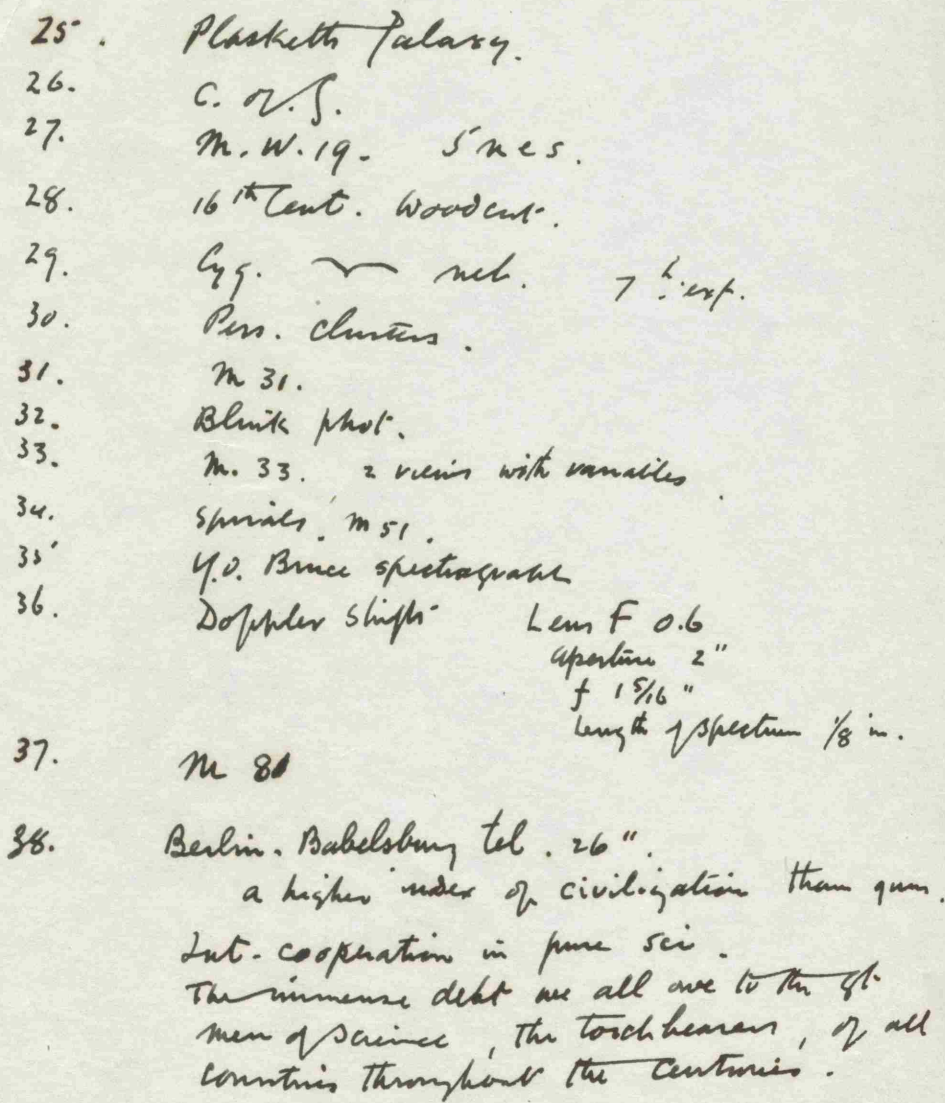 25. Plasketts Galaxy.
26. C. of G.
27. M.W. 19. 5 nes.
28. 16th Cent. Woodcut.
29. Cyg. neb. 7h. exp.
30. Pers. clusters.
31. M 31.
32. Blink phot.
33. M. 33. 2 views with variables.
34. Spirals. M 51.
35 Y.O. Bruce spectrograph
36. Doppler Shifts Lens F 0.6
aperture 2"
f 1 5/16 "
Length of Spectrum 1/8 in.
37. M 81
38. Berlin-Babelsburg tel. 26".
a higher index of civilization than guns.
Int. cooperation in pure sci.
The immense debt we all owe to the gt
men of science, the torchbearers, of all
countries throughout the centuries.